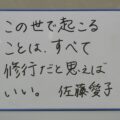 この世で起こる
ことは、すべて
修行だと思えば
いい。 佐藤愛子